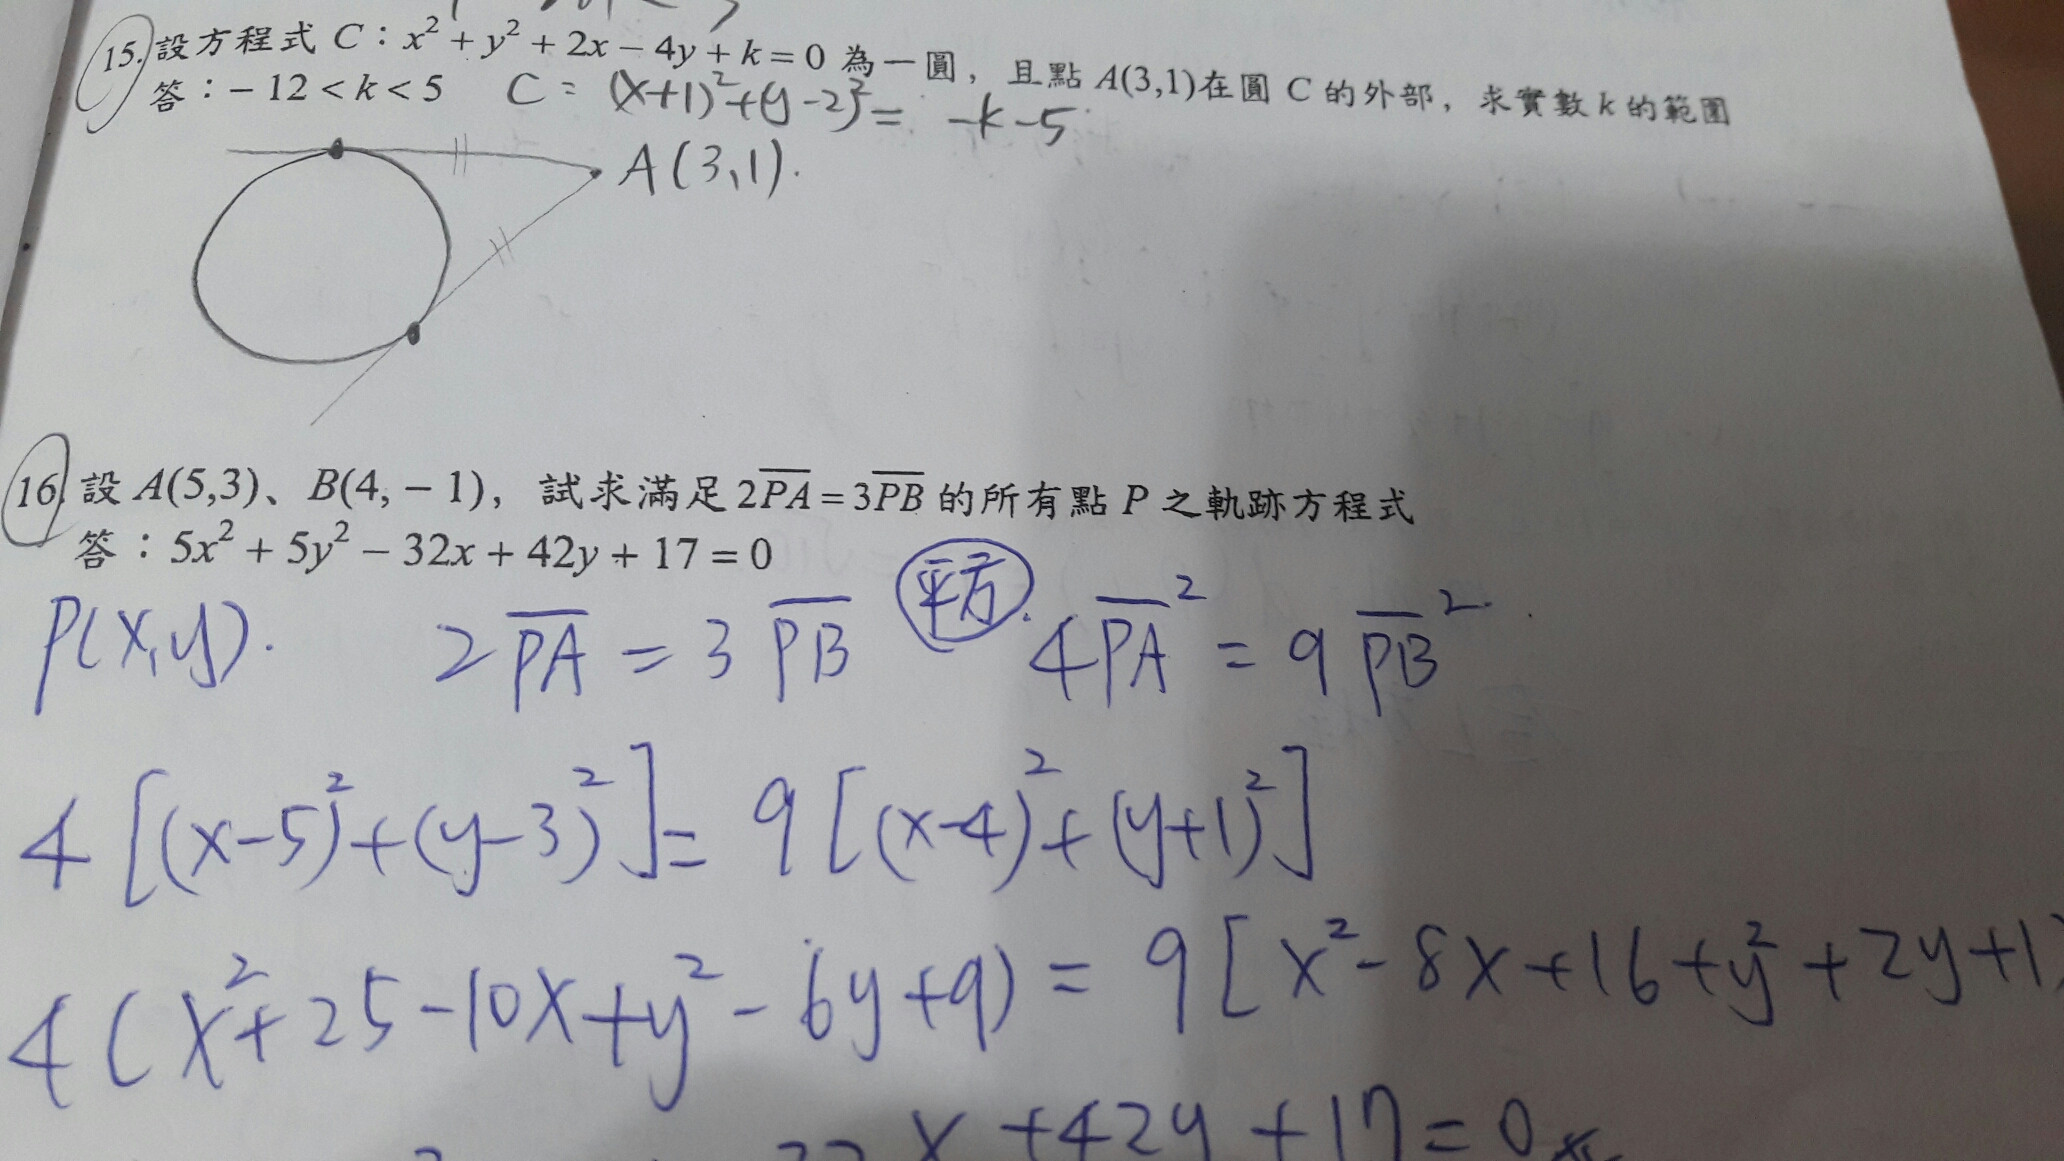 15. 設方程式 C：x² + y² + 2x − 4y + k = 0 為一圓，且點 A(3,1)在圓 C 的外部，求實數 k 的範圍
答：− 12 < k < 5 C = (x+1)²+(y−2)² = −k−5
A(3,1).
16. 設 A(5,3)、B(4, − 1)，試求滿足 2PA = 3PB 的所有點 P 之軌跡方程式
答：5x² + 5y² − 32x + 42y + 17 = 0
P(x,y). 2PA = 3PB 平方. 4PA² = 9PB²
4[(x−5)²+(y−3)²] = 9[(x−4)²+(y+1)²]
4(x²+25−10x+y²−6y+9) = 9[x²−8x+16+y²+2y+1
x+42y+17=0